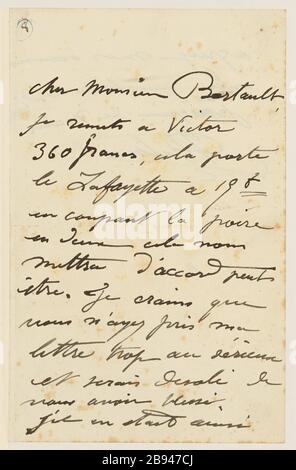 cher Monsieur Bertault,
je remets a Victor
360 francs, cela porte
le Lafayette a 19
en coupant la poire
en deux cela nous
mettra d'accord peut
être. Je crains que
vous n'ayez pris ma
lettre trop au sérieux
et serais desolé de
vous avoir blessé
s'il en etait ainsi
alamy
Image ID: 2B947CJ
www.alamy.com